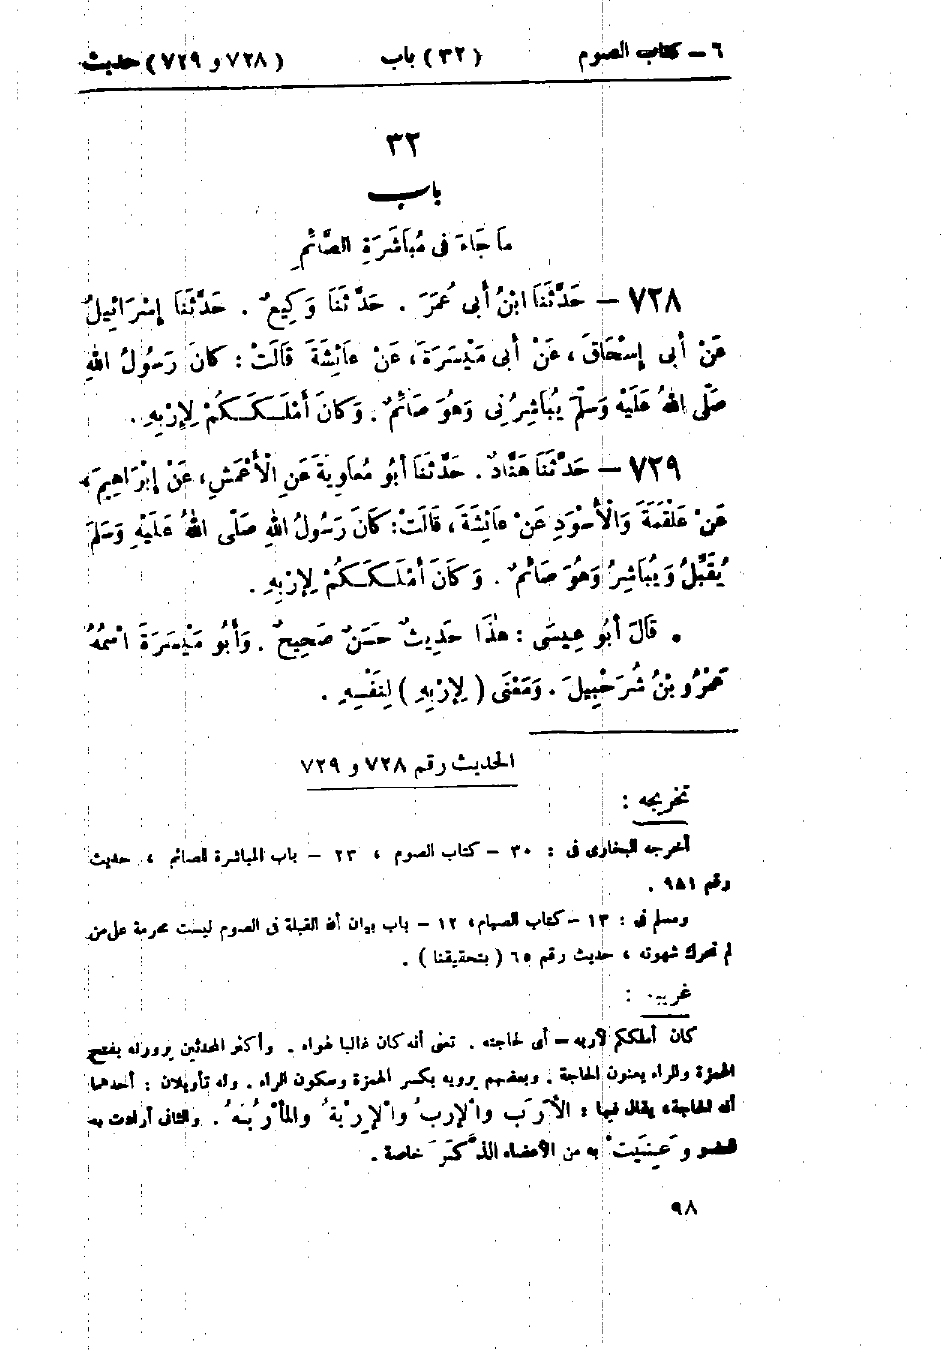 ٦ – كتاب الصوم (٣٢) باب (٧٢٨ و ٧٢٩) حديث
٣٢
باب
مَا جَاءَ فى مُبَاشَرَةِ الصَّائِمِ
٧٢٨ – حَدَّثَنَا ابْنُ أَبِى عُمَرَ . حَدَّثَنَا وَكِيعٌ . حَدَّثَنَا إِسْرَائِيلُ
عَنْ أَبِى إِسْحَاقَ ، عَنْ أَبِى مَيْسَرَةَ ، عَنْ عَائِشَةَ قَالَتْ : كَانَ رَسُولُ اللهِ
صَلَّى اللهُ عَلَيْهِ وَسَلَّمَ يُبَاشِرُنِى وَهُوَ صَائِمٌ . وَكَانَ أَمْلَكَكُمْ لِإِرْبِهِ .
٧٢٩ – حَدَّثَنَا هَنَّادٌ . حَدَّثَنَا أَبُو مُعَاوِيَةَ عَنِ الْأَعْمَشِ ، عَنْ إِبْرَاهِيمَ ،
عَنْ عَلْقَمَةَ وَالْأَسْوَدِ عَنْ عَائِشَةَ ، قَالَتْ : كَانَ رَسُولُ اللهِ صَلَّى اللهُ عَلَيْهِ وَسَلَّمَ
يُقَبِّلُ وَيُبَاشِرُ وَهُوَ صَائِمٌ . وَكَانَ أَمْلَكَكُمْ لِإِرْبِهِ .
• قَالَ أَبُو عِيسَى : هٰذَا حَدِيثٌ حَسَنٌ صَحِيحٌ . وَأَبُو مَيْسَرَةَ اسْمُهُ
عَمْرُو بْنُ شُرَحْبِيلَ . وَمَعْنَى ( لِإِرْبِهِ ) لِنَفْسِهِ .
الحديث رقم ٧٢٨ و ٧٢٩
تخريجه :
أخرجه البخارى فى : ٣٠ – كتاب الصوم ، ٢٣ – باب المباشرة للصائم ، حديث
رقم ٩٨١ .
ومسلم فى : ١٣ – كتاب الصيام ، ١٢ – باب بيان أن القبلة فى الصوم ليست محرمة على من
لم تحرك شهوته ، حديث رقم ٦٥ ( بتحقيقنا ) .
غريبه :
كان أملككم لأربه – أى لحاجته . تعنى أنه كان غالبا لهواه . وأكثر المحدثين يروونه بفتح
الهمزة والراء يعنون الحاجة . وبعضهم يرويه بكسر الهمزة وسكون الراء . وله تأويلان : أحدهما
أنه الحاجة ، يقال فيها : الأَرَب والإرب والإِرْبَة والمأْرُبَة . والثانى أرادت به
العضو وعَنَيَتْ به من الأعضاء الذَّكَرَ خاصة .
٩٨